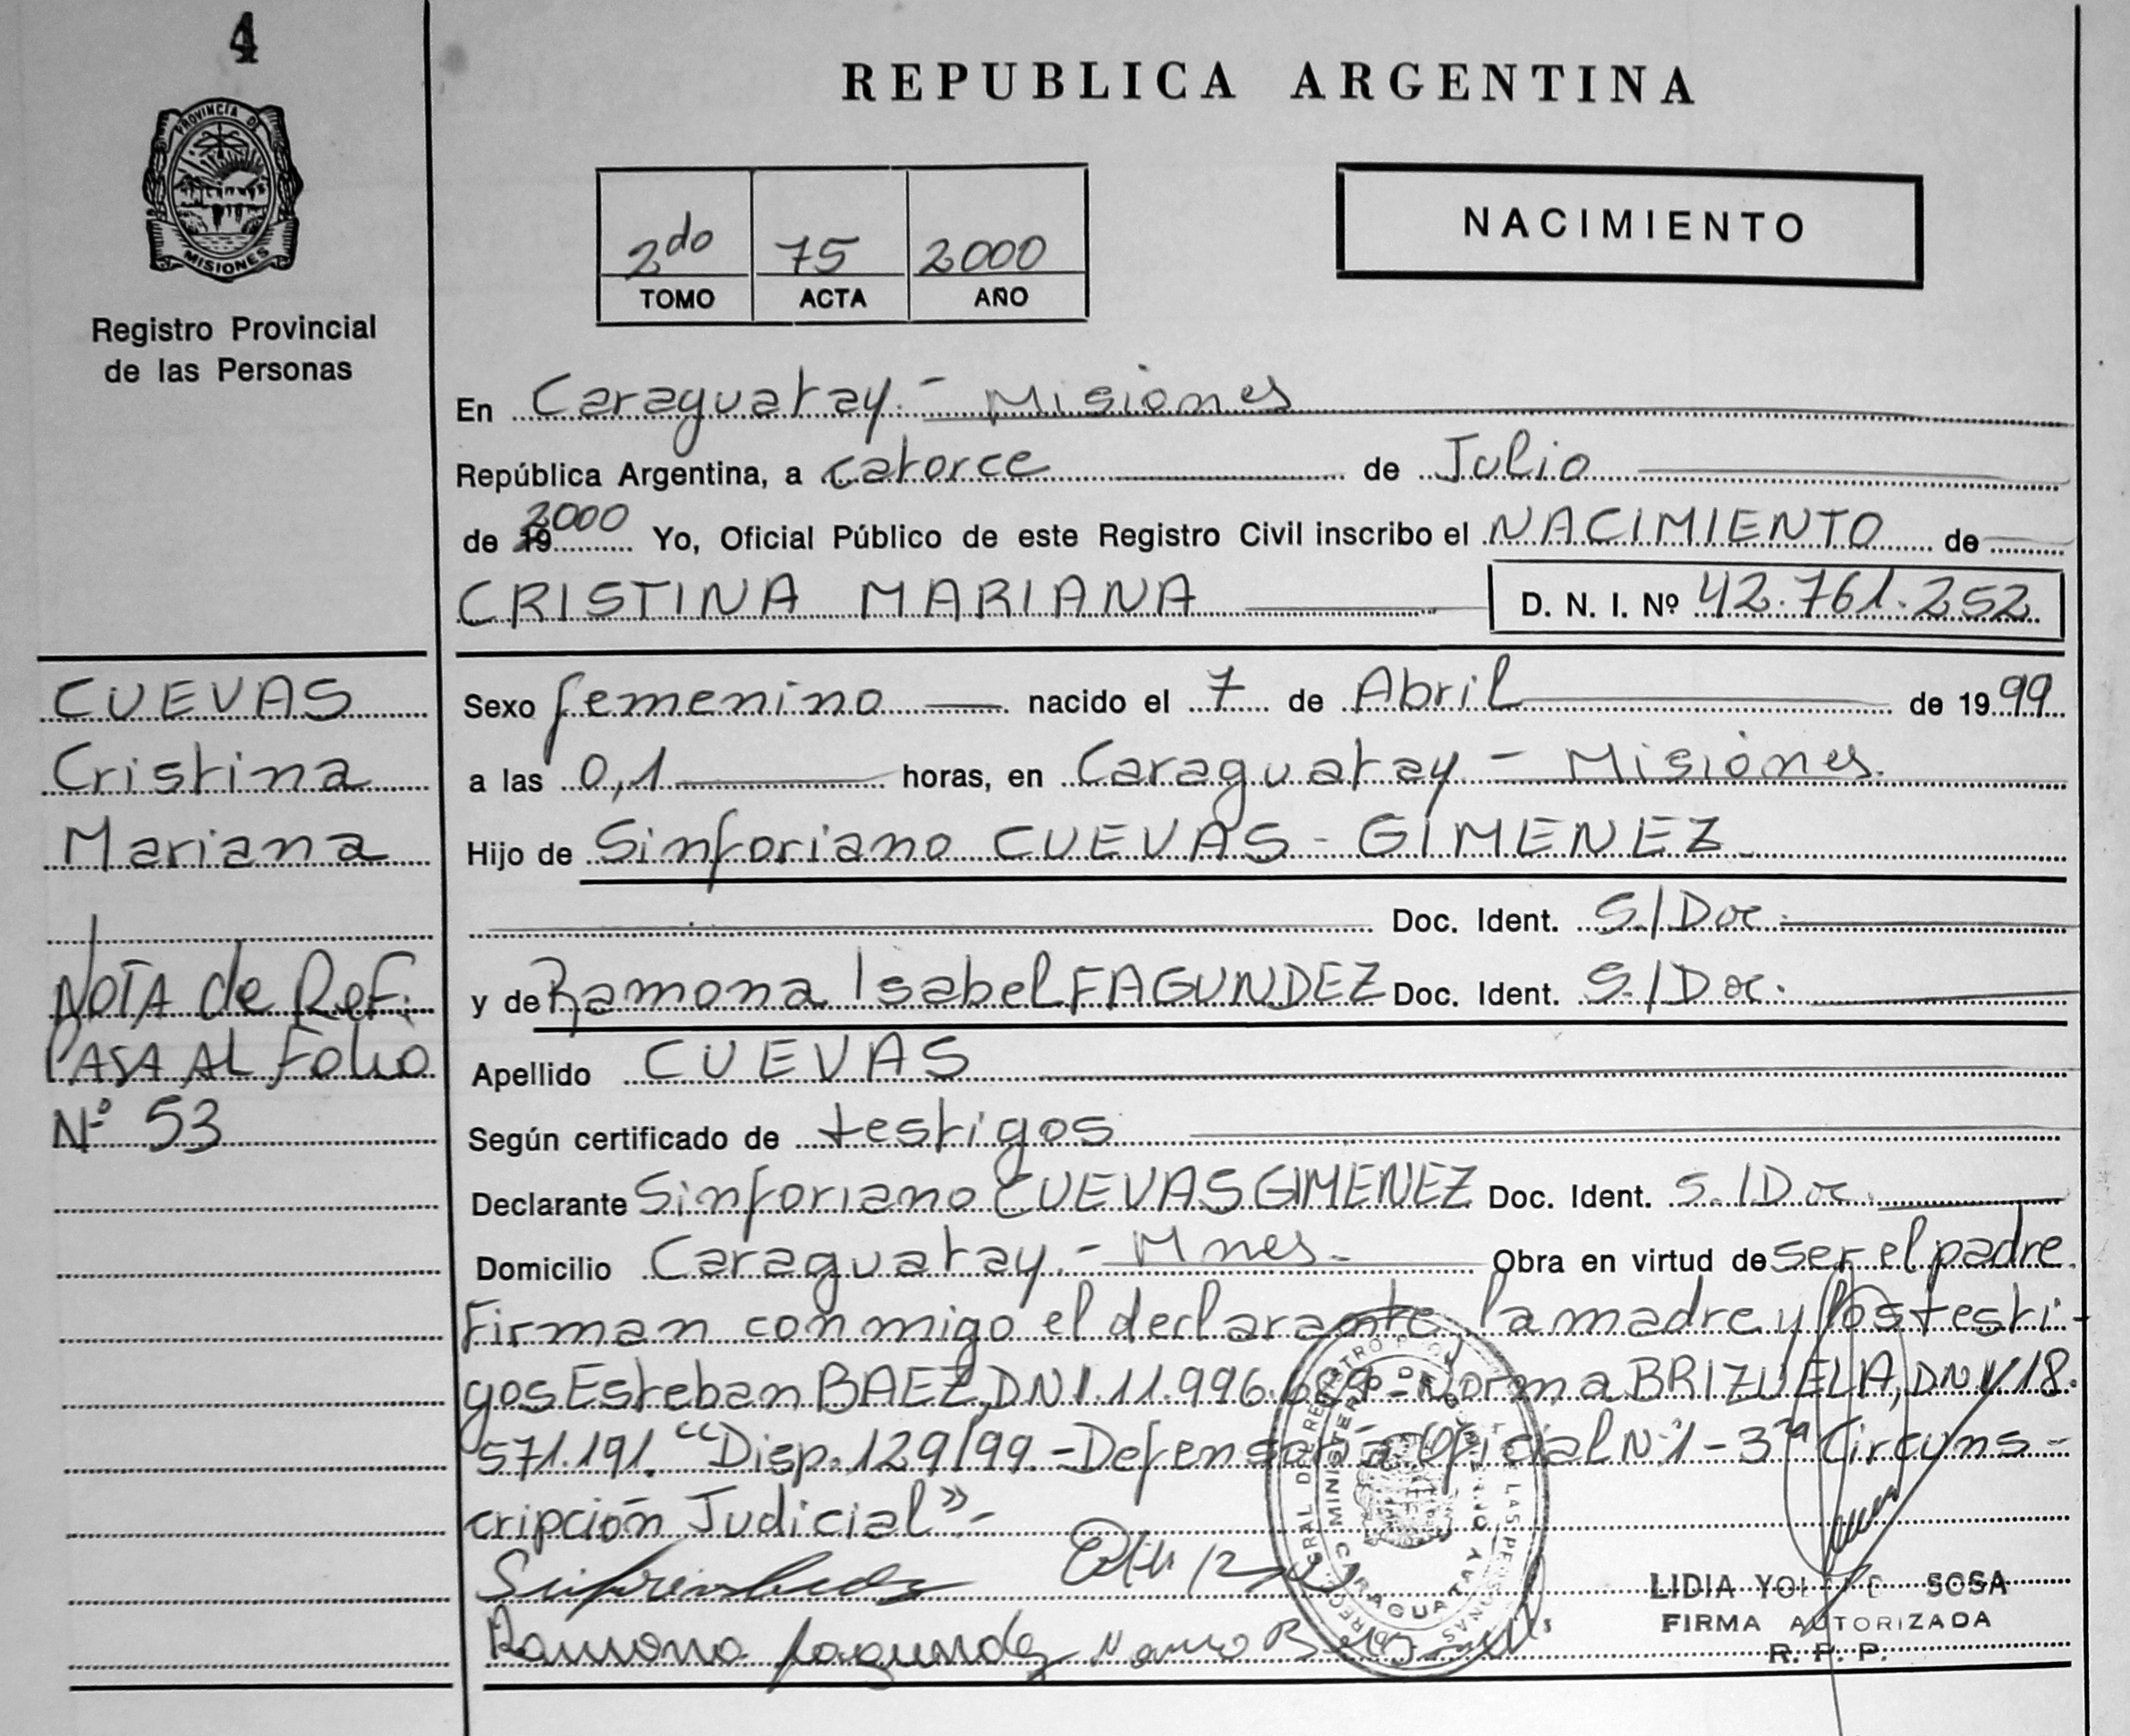 4
PROVINCIA DE
MISIONES
Registro Provincial
de las Personas
REPUBLICA ARGENTINA
2do 75 2000
TOMO ACTA AÑO
NACIMIENTO
En Caraguatay - Misiones
República Argentina, a catorce de Julio
de 19 2000 Yo, Oficial Público de este Registro Civil inscribo el NACIMIENTO de
CRISTINA MARIANA D. N. I. Nº 42.761.252
CUEVAS
Cristina
Mariana
NOTA de Ref.
PASA AL Folio
Nº 53
Sexo femenino nacido el 7 de Abril de 1999
a las 0,1 horas, en Caraguatay - Misiones.
Hijo de Sinforiano CUEVAS - GIMENEZ
Doc. Ident. S./Doc.
y de Ramona Isabel FAGUNDEZ Doc. Ident. S./Doc.
Apellido CUEVAS
Según certificado de testigos
Declarante Sinforiano CUEVAS GIMENEZ Doc. Ident. S./Doc.
Domicilio Caraguatay.- Mnes.- Obra en virtud de ser el padre.
Firman conmigo el declarante, la madre y los testi-
gos Esteban BAEZ, DNI. 11.996. - Norma BRIZUELA, DNI 18.
571.191. "Disp. 129/99 - Defensoría Oficial Nº1 - 3ra Circuns-
cripción Judicial".-
Ramona fagundez
CARAGUATAY
LIDIA SOSA
FIRMA AUTORIZADA
R. P. P.